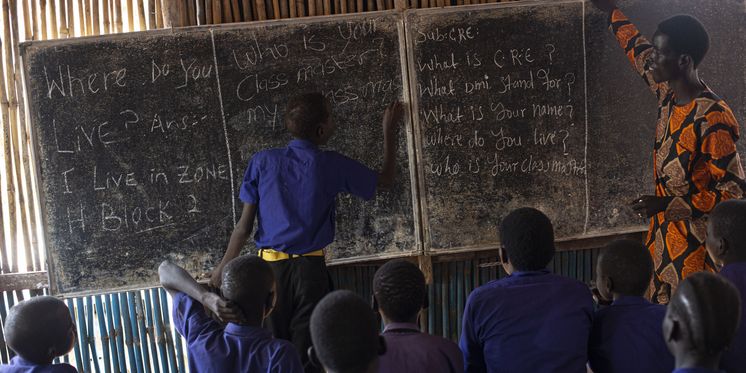 Where Do You
LIVE? Ans:-
I LIVE in ZONE
H BLOCK 2
WHO is YOUR
CLASS master?
my
Sub: CRE:
WHAT is CRE?
WHAT DMI Stand For?
WHAT is Your Name?
WHere do You live?
WHO is Your Class Master